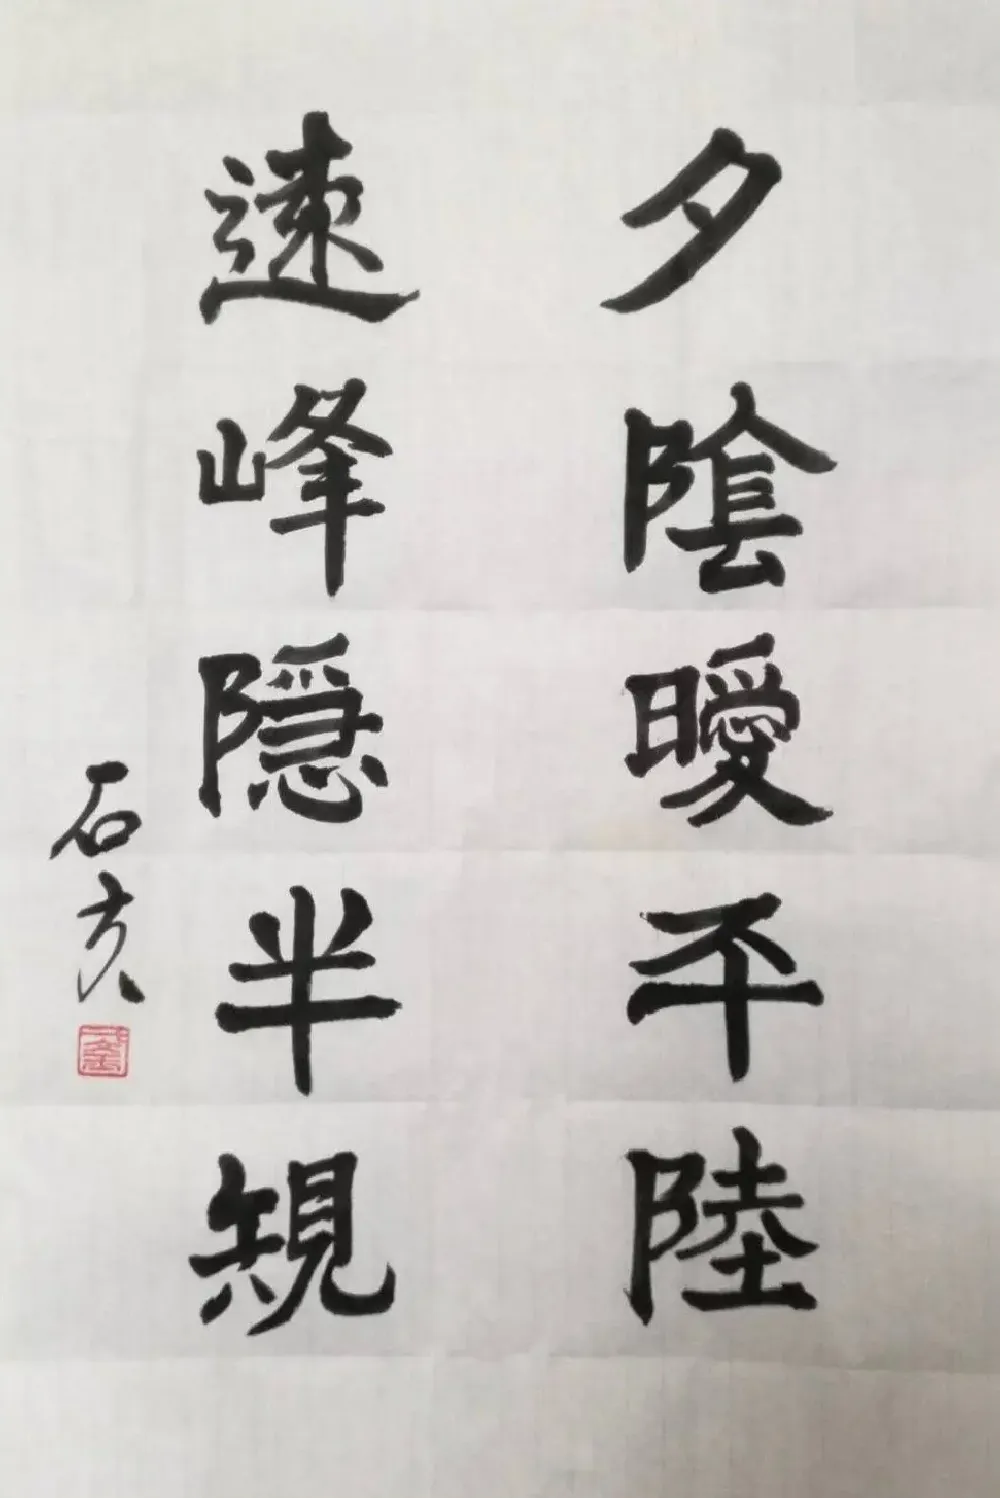 夕陰曖平陸
遠峰隱半規
石亥